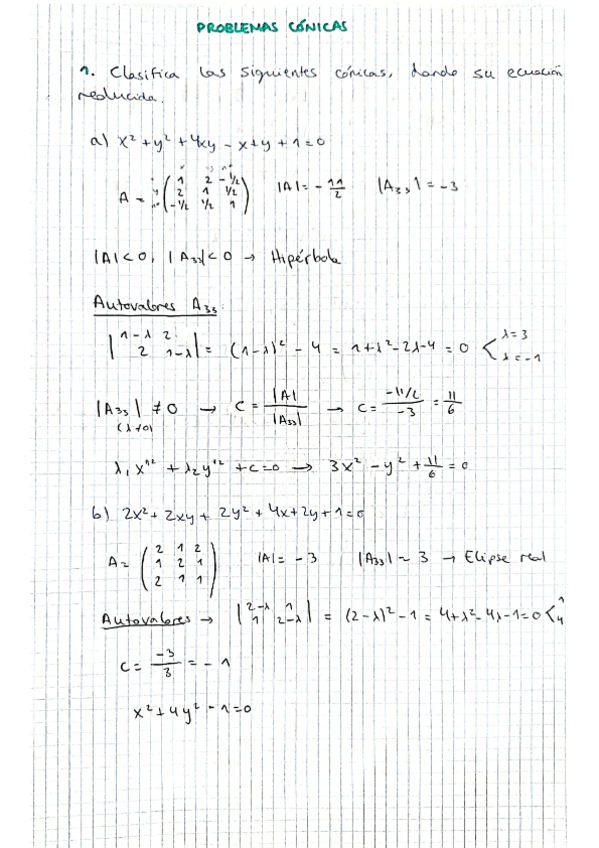 PROBLEMAS CÓNICAS
1. Clasifica las siguientes cónicas, dando su ecuación
reducida.
a) x² + y² + 4xy - x + y + 1 = 0
A = ( 1 2 -1/2 ; 2 1 1/2 ; -1/2 1/2 1 ) |A| = - 11/2 |A₃₃| = -3
|A| < 0, |A₃₃| < 0 → Hipérbola
Autovalores A₃₃:
| 1-λ 2 ; 2 1-λ | = (1-λ)² - 4 = 1+λ²-2λ-4 = 0 < λ=3 ; λ=-1
|A₃₃| ≠ 0 → C = |A| / |A₃₃| → C = -11/2 / -3 = 11/6
(λ≠0)
λ₁x''² + λ₂y''² + c = 0 → 3x² - y² + 11/6 = 0
b) 2x² + 2xy + 2y² + 4x + 2y + 1 = 0
A = ( 2 1 2 ; 1 2 1 ; 2 1 1 ) |A| = -3 |A₃₃| = 3 → Elipse real
Autovalores → | 2-λ 1 ; 1 2-λ | = (2-λ)² - 1 = 4+λ²-4λ-1 = 0 < 1 ; 4
C = -3/3 = -1
x² + 4y² - 1 = 0